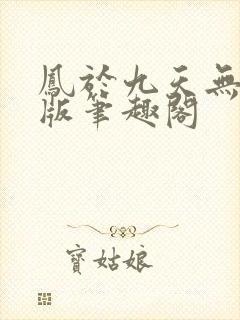 鳳於九天無
版筆趣閣
寶姑娘